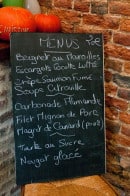 MENUS
Beignet au Maroilles
Escargots Recette Luthé
Crêpe Saumon Fumé
Soupe Citrouille
Carbonade Flamande
Filet Mignon de Porc
Magret de Canard
Tarte au Sucre
Nougat glacé